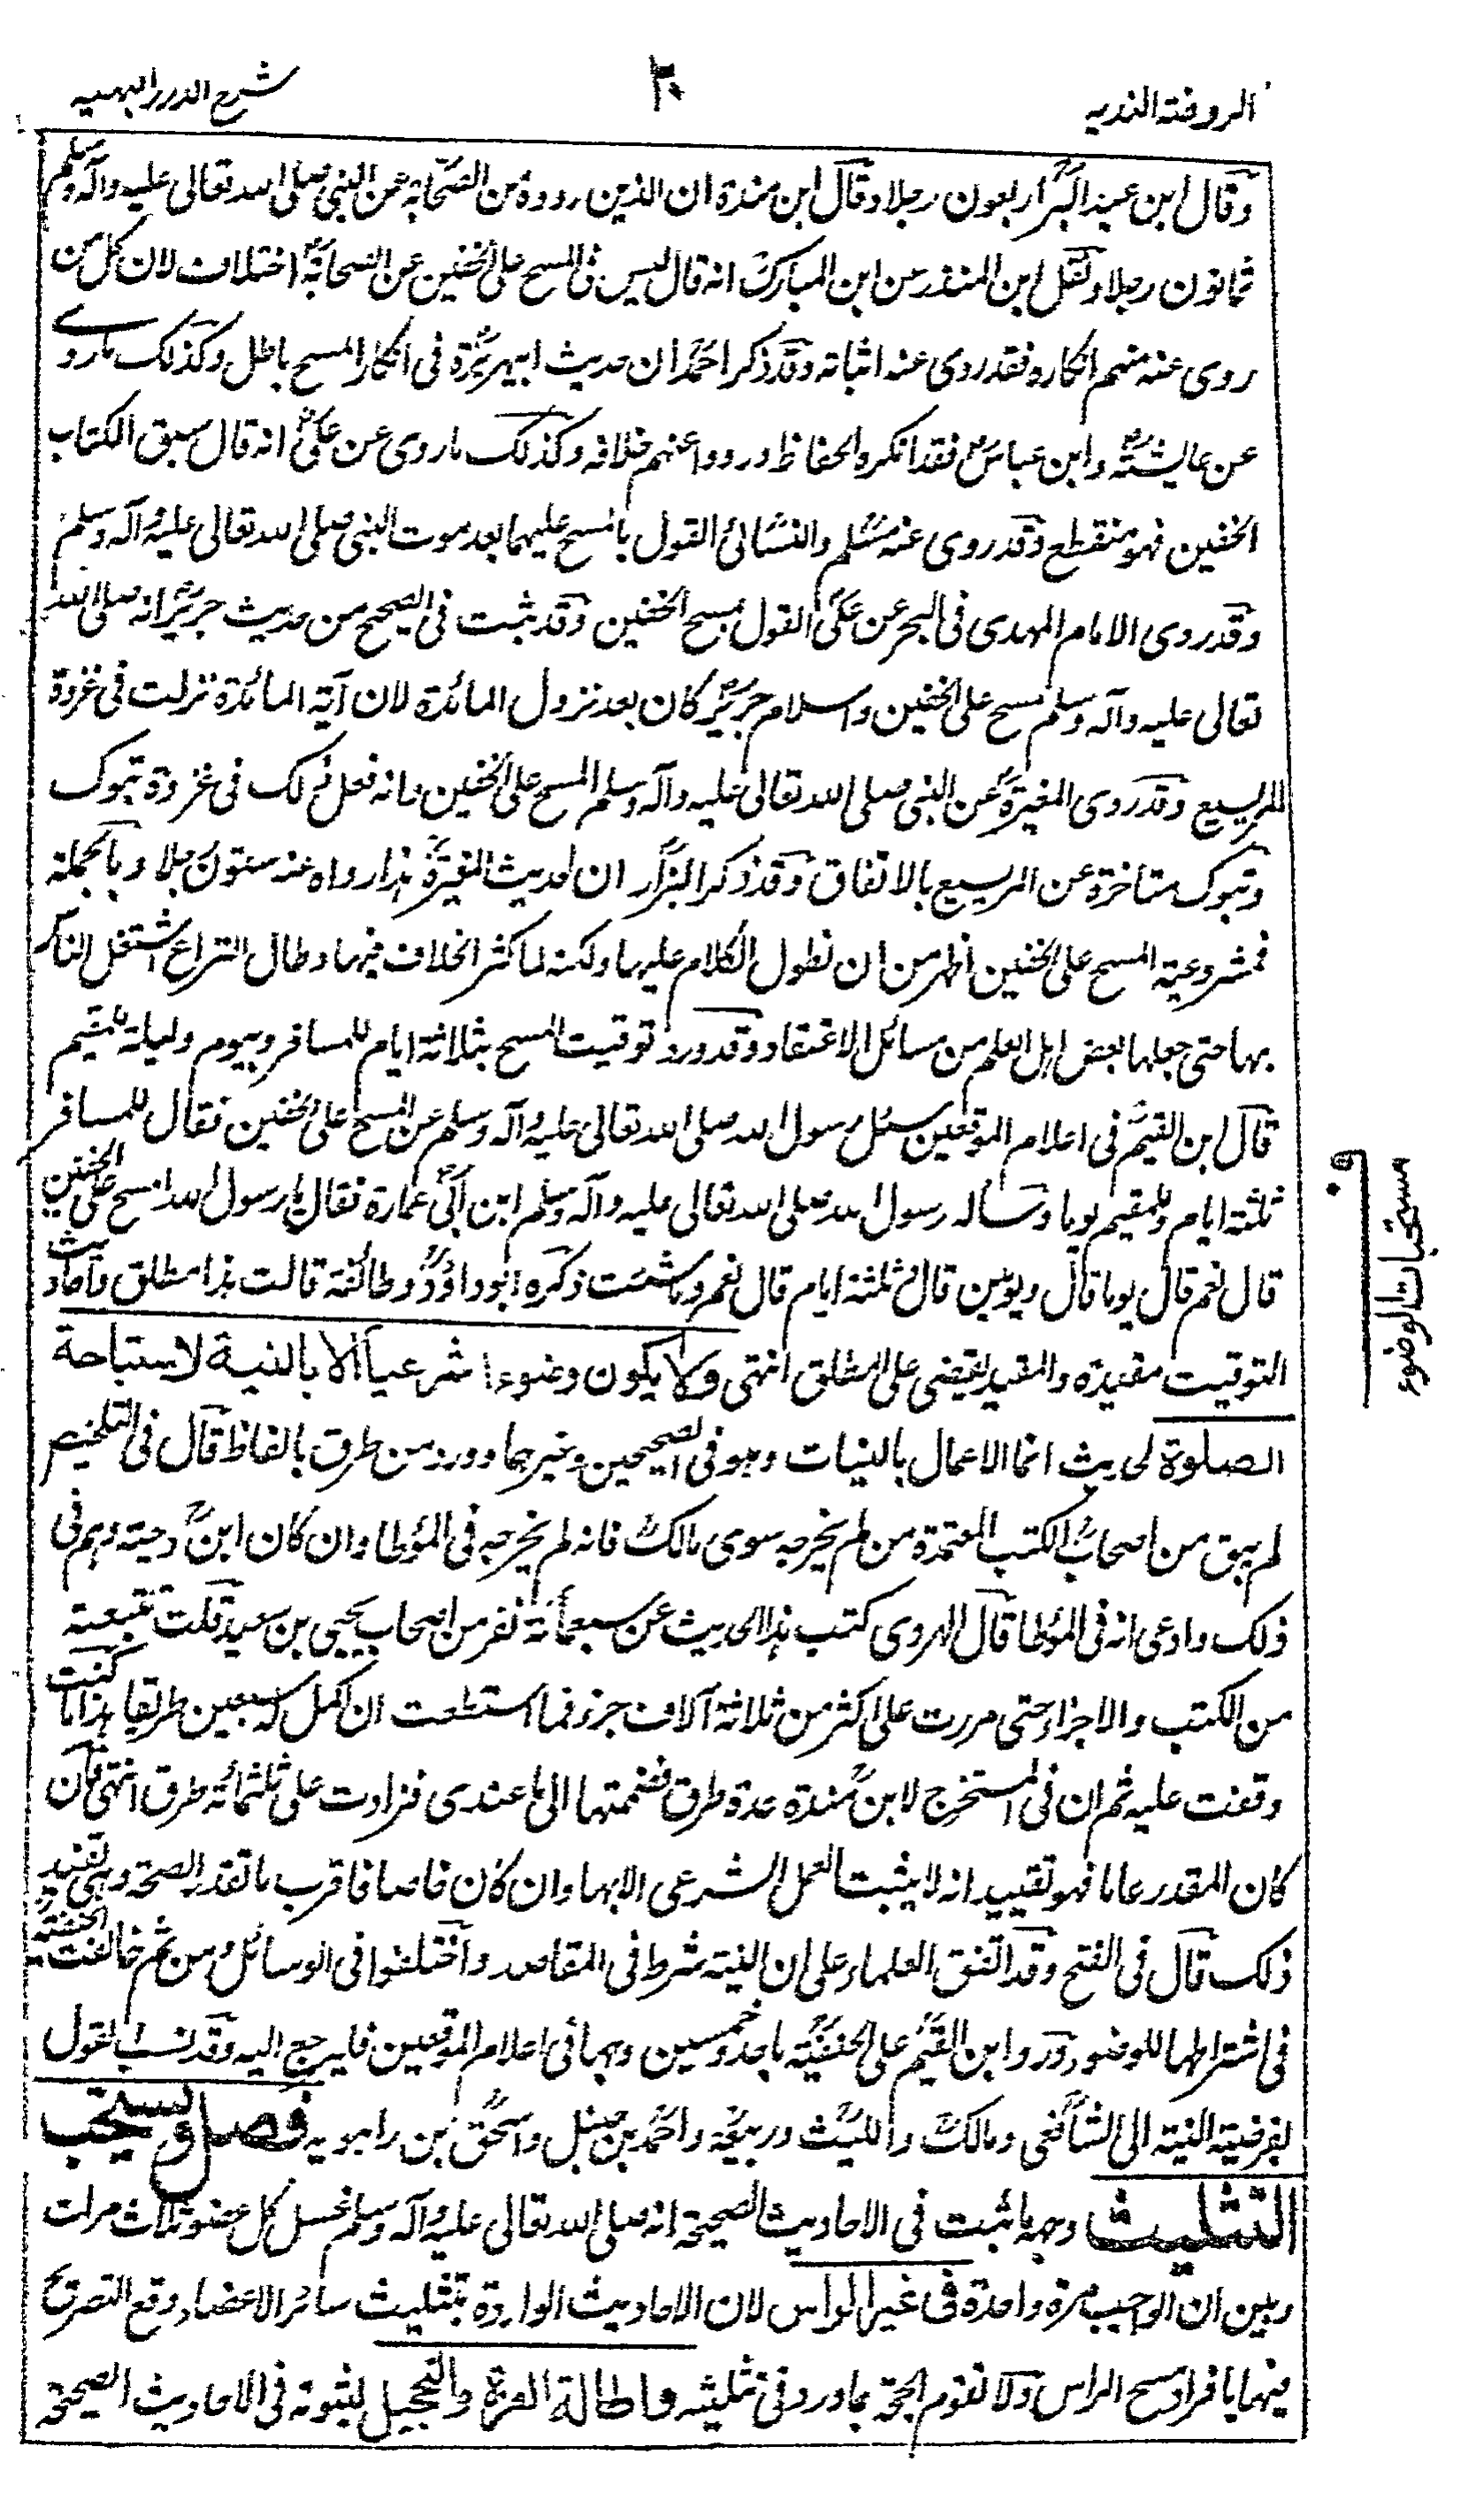 الروضة الندية
٣٠
شرح الدرر البهية
وقال ابن عبد البر اربعون رجلا وقال ابن مندة ان الذين رووه من الصحابة عن النبي صلى الله تعالى عليه وآله وسلم
ثمانون رجلا ونقل ابن المنذر عن ابن المبارك انه قال ليس في المسح على الخفين عن الصحابة اختلاف لان كل من
روى عنه منهم انكاره فقد روى عنه اثباته وقد ذكر احمد ان حديث ابيهريرة في انكار المسح باطل وكذلك ما روي
عن عايشة وابن عباس فقد انكره الحفاظ ورووا عنهم خلافه وكذلك ما روى عن علي انه قال سبق الكتاب
الخفين فهو منقطع وقد روى عنه مسلم والنسائي القول بالمسح عليهما بعد موت النبي صلى الله تعالى عليه وآله وسلم
وقد روى الامام المهدى في البحر عن علي القول بمسح الخفين وقد ثبت في الصحيح من حديث جرير انه صلى الله
تعالى عليه وآله وسلم مسح على الخفين واسلام جرير كان بعد نزول المائدة لان آية المائدة نزلت في غزوة
المريسيع وقد روى المغيرة عن النبي صلى الله تعالى عليه وآله وسلم المسح على الخفين وانه فعل ذلك في غزوة تبوك
وتبوك متاخرة عن المريسيع بالاتفاق وقد ذكر البزار ان حديث المغيرة هذا رواه عنه ستون رجلا وبالجملة
فمشروعية المسح على الخفين اظهر من ان نطول الكلام عليها ولكنه لما كثر الخلاف فيها وطال النزاع اشتغل الناس
بها حتى جعلها بعض اهل العلم من مسائل الاعتقاد وقد ورد توقيت المسح بثلاثة ايام للمسافر وبيوم وليلة للمقيم
قال ابن القيم في اعلام الموقعين سئل رسول الله صلى الله تعالى عليه وآله وسلم عن المسح على الخفين فقال للمسافر
ثلثة ايام وللمقيم يوما وسأله رسول الله صلى الله تعالى عليه وآله وسلم ابن ابي عمارة فقال يا رسول الله امسح على الخفين
قال نعم قال يوما قال ويومين قال وثلثة ايام قال نعم وما شئت ذكره ابوداؤد وطائفة قالت هذا مطلق واحاديث
التوقيت مقيدة والمقيد يقضي على المطلق انتهى ولا يكون وضوءا شرعيا الا بالنية لاستباحة
الصلوة لحديث انما الاعمال بالنيات وهو في الصحيحين وغيرهما وورد من طرق بالفاظ قال في التلخيص
لم يبق من اصحاب الكتب المعتمدة من لم يخرجه سوى مالك فانه لم يخرجه في المؤطا وان كان ابن دحية وهم في
ذلك وادعى انه في المؤطا قال الهروى كتب هذا الحديث عن سبعمائة نفر من اصحاب يحيى بن سعيد قلت تتبعته
من الكتب والاجزاء حتى مررت على اكثر من ثلاثة آلاف جزء فما استطعت ان اكمل له سبعين طريقا هذا ما كنت
وقفت عليه ثم ان في المستخرج لابن مندة عدة طرق فضممتها الى ما عندى فزادت على ثلثمائة طرق انتهى فان
كان المقدر عاما فهو تقييد انه لا يثبت العمل الشرعي الا بها وان كان خاصا فاقرب ما تقدر الصحة وهي تفيد
ذلك قال في الفتح وقد اتفق العلماء على ان النية شرط في المقاصد واختلفوا في الوسائل ومن ثم خالفت الحنفية
في اشتراطها للوضوء ورد ابن القيم على الحنفية باحد وخمسين وجها في اعلام الموقعين فليرجع اليه وقد نسب القول
بفرضية النية الى الشافعي ومالك والليث وربيعة واحمد بن حنبل واسحق بن راهويه فصل ويستحب
التثليث وجهه ما ثبت في الاحاديث الصحيحة انه صلى الله تعالى عليه وآله وسلم غسل كل عضو ثلاث مرات
وبين ان الواجب مرة واحدة في غير الراس لان الاحاديث الواردة بتثليث سائر الاعضاء وقع التصريح
فيها بافراد مسح الراس ولا تقوم الحجة بما ورد في تثليثه واطالة الغرة والتحجيل لثبوته في الاحاديث الصحيحة
ف
مستحبات الوضوء